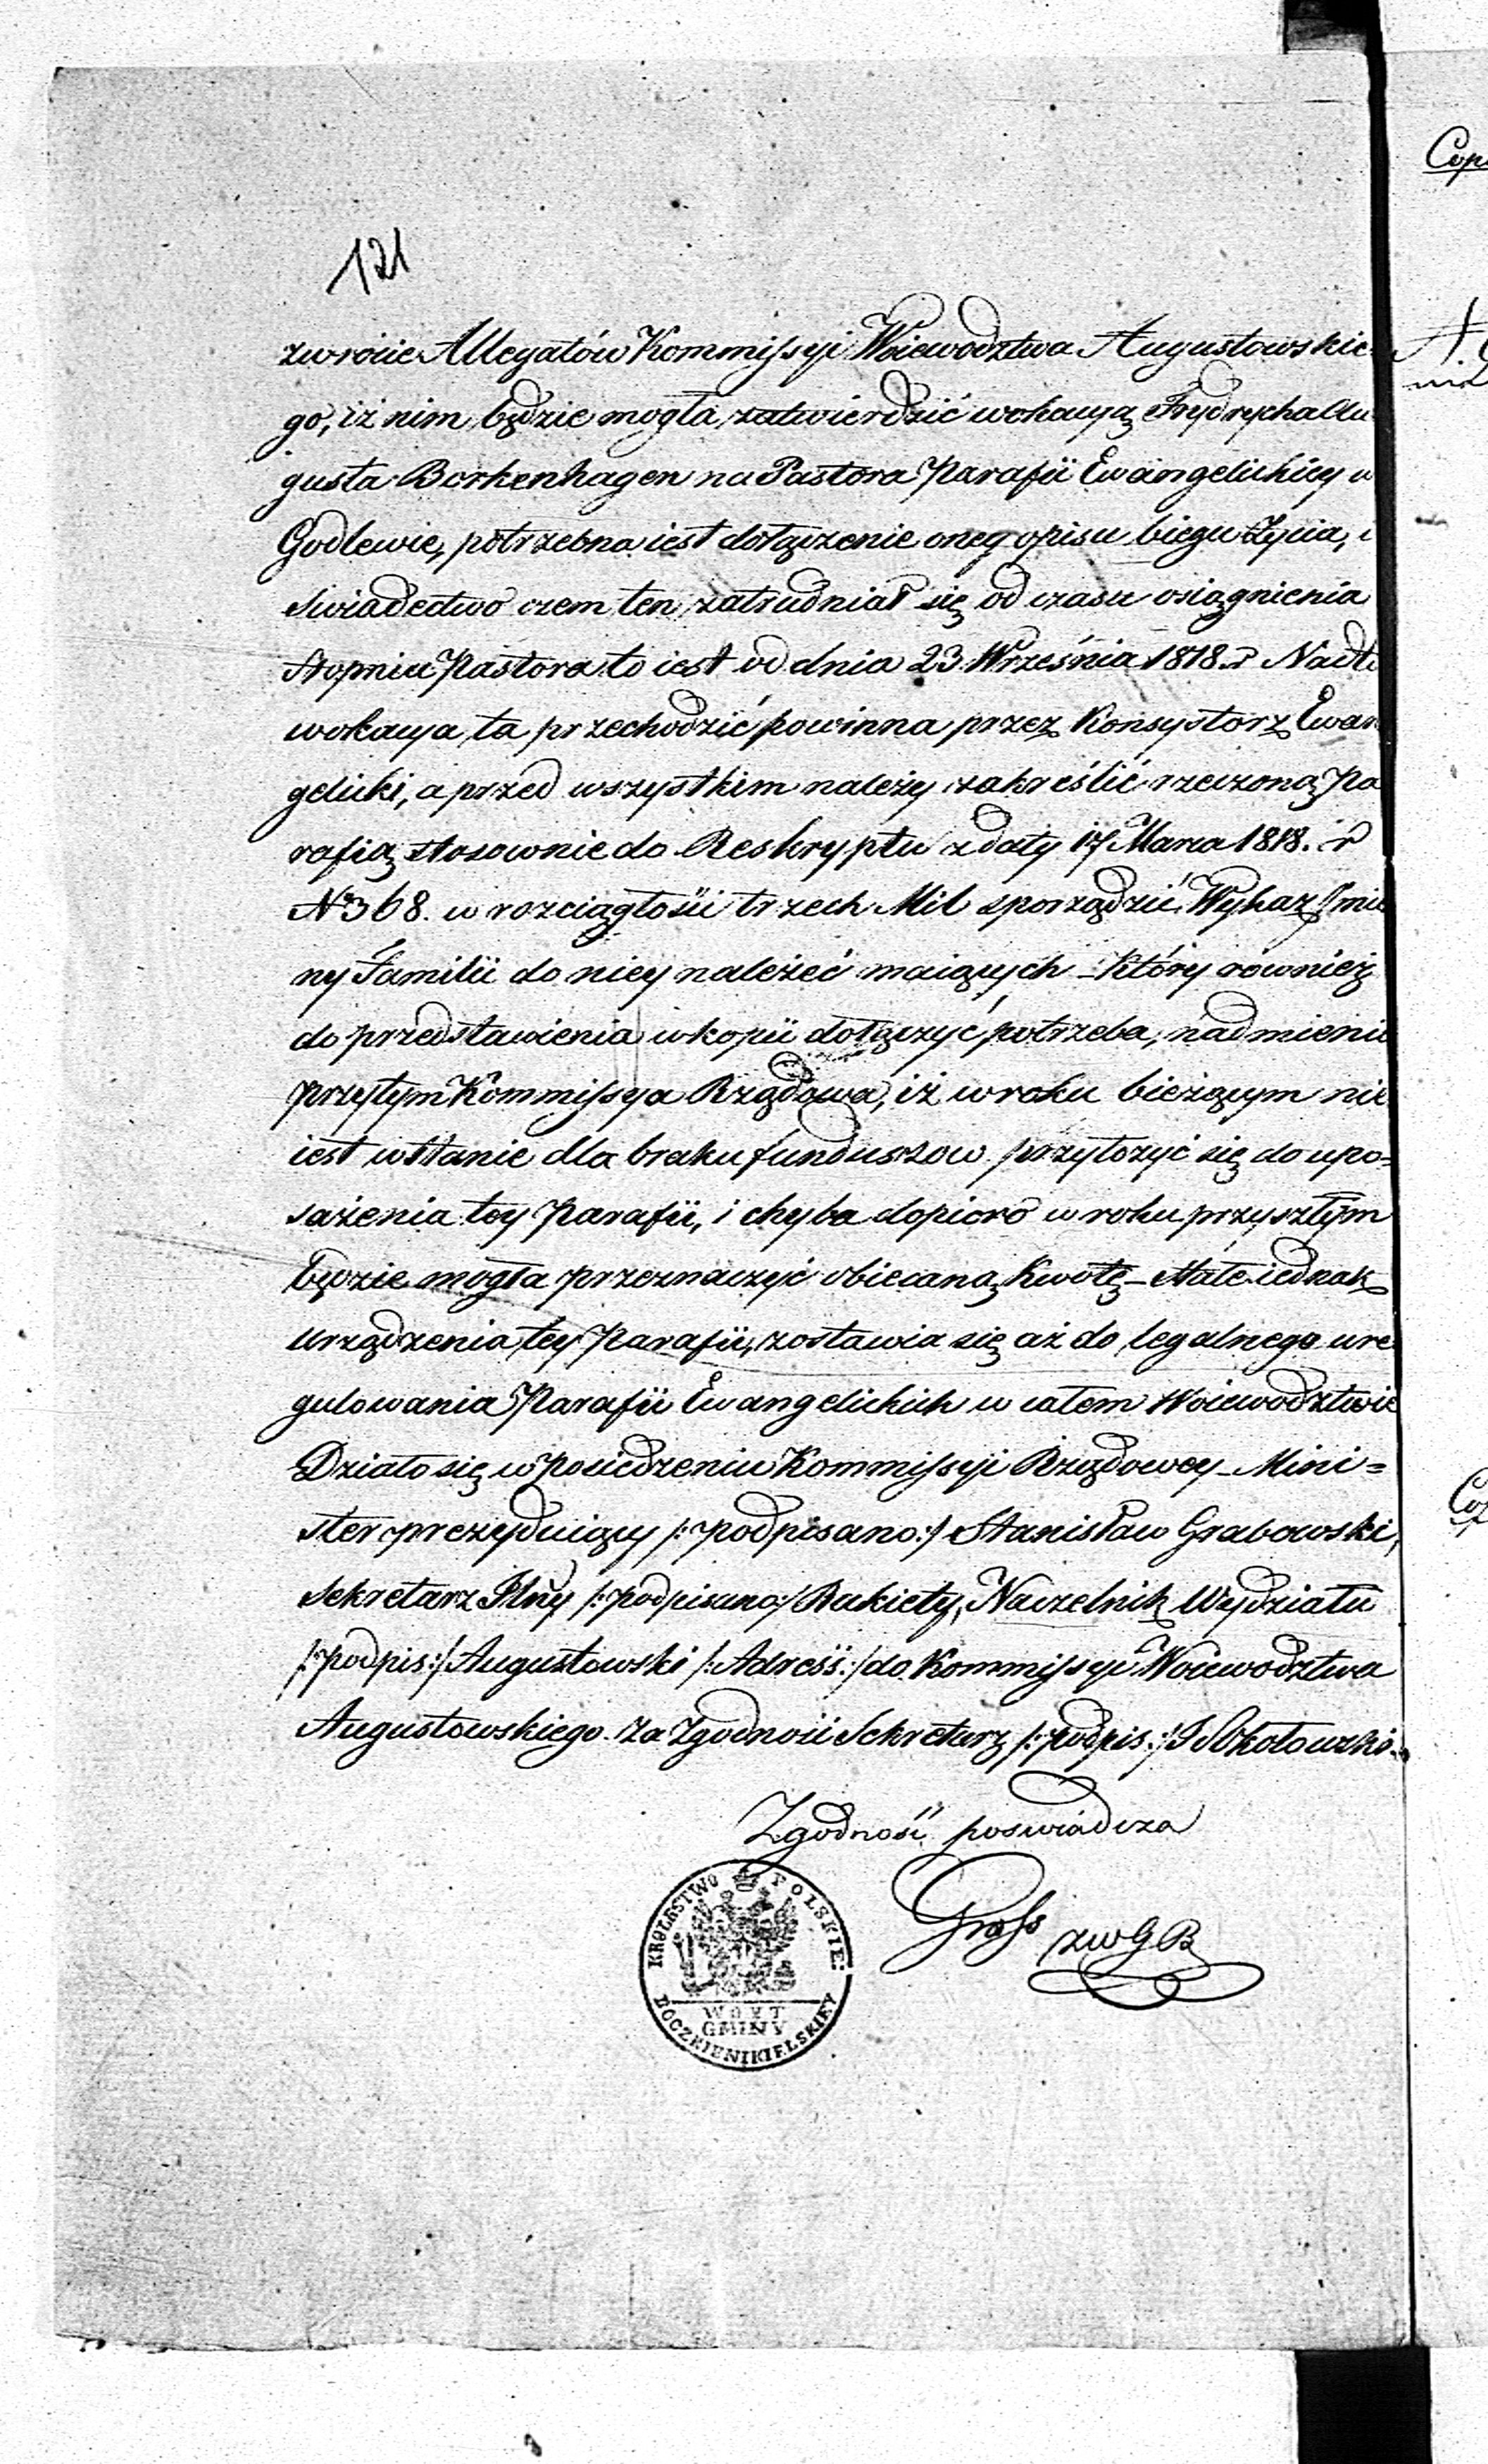 121
zwrocie Allegatów Kommissyi Woiewodztwa Augustowskie
go, iż nim będzie mogła zatwierdzić wokacyą Frydrycha Au
gusta Borkenhagen na Pastora Parafii Ewangelickiey w
Godlewie, potrzebna iest dołączenie oneg opisu biegu życia, i
swiadectwo czem ten zatrudniał się od czasu osiągnienia
stopnia Pastora to iest od dnia 23 Września 1818 r Nadto
wokacya ta przechodzić powinna przez Konsystorz Ewan
gelicki, a przed wszystkim należy zakreślić rzeczoną Pa
rafią stosownie do Reskryptu z daty 17 Marca 1818. r
No 368. w rozciągłości trzech Mil sporządzić Wykaz Imie
ny Familii do niey należeć maiących - który również
do przedstawienia w kopii dołączyć potrzeba, nadmienia
przytym Kommissya Rządowa, iż w roku bieżącym nie
iest wstanie dla braku funduszow przyłożyć się do upo=
sażenia tey Parafii, i chyba dopiero w roku przyszłym
będzie mogła przeznaczyć obiecaną kwotę - Stałe iednak
urządzenia tey Parafii, zostawia się aż do legalnego ure
gulowania Parafii Ewangelickich w całem Woiewodztwie
Działo się w posiedzeniu Kommissyi Rządowey - Mini=
ster prezyduiący /: podpisano:/ Stanisław Grabowski,
Sekretarz Jlny /:podpisano:/ Rukiety, Naczelnik Wydziału
/:podpis:/ Augustowski /:Adress:/ do Kommissyi Woiewodztwa
Augustowskiego. Za zgodność Sekretarz /:podpis:/ J Sokołowski.
Zgodność poswiadcza
Gross zwGB
KROLESTWO POLSKIE:
WOYT
GMINY
Cop